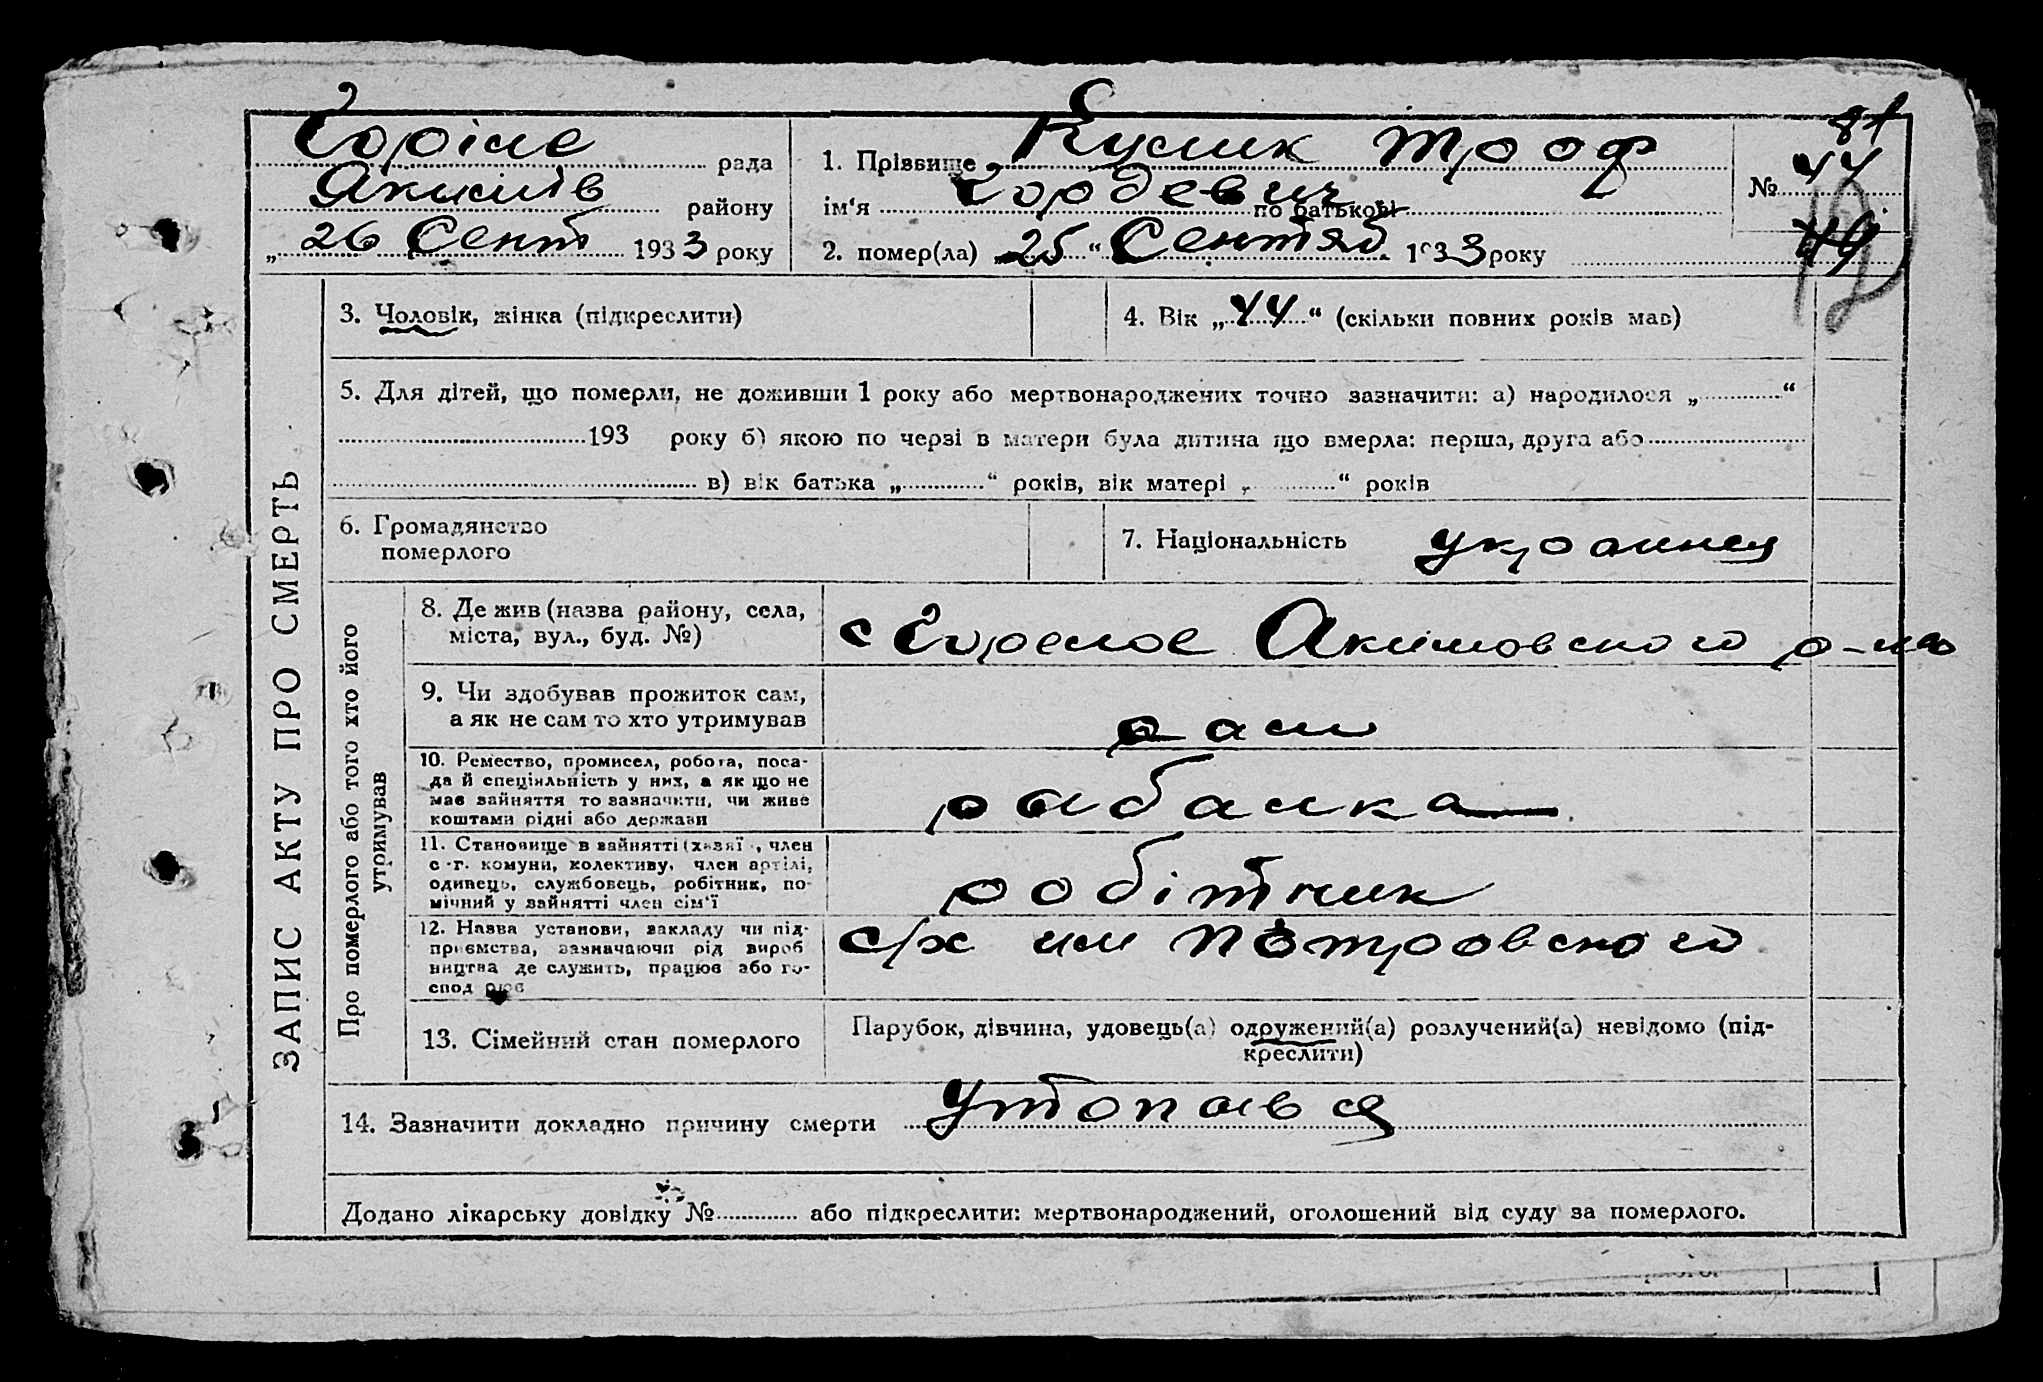 Горіле рада
Якимів району
„26 Сент 1933 року
1. Прізвище Кулик Троф
ім'я Гордевич по батькові
2. помер(ла) „25“ Сентяб 1933 року
№ 44
3. Чоловік, жінка (підкреслити)
4. Вік „44“ (скільки повних років мав)
5. Для дітей, що померли, не доживши 1 року або мертвонароджених точно зазначити: а) народилося „ “
193 року б) якою по черзі в матери була дитина що вмерла: перша, друга або
в) вік батька „ “ років, вік матері „ “ років
6. Громадянство
померлого
7. Національність украинец
ЗАПИС АКТУ ПРО СМЕРТЬ
Про померлого або того хто його
утримував
8. Де жив (назва району, села,
міста, вул., буд. №)
с Горелое Акимовского р-на
9. Чи здобував прожиток сам,
а як не сам то хто утримував
сам
10. Ремество, промисел, робота, поса-
да й спеціяльність у них, а як що не
має зайняття то зазначити, чи живе
коштами рідні або держави
рыбалка
11. Становище в зайнятті (хазяї , член
с-г. комуни, колективу, член артілі,
одинець, службовець, робітник, по-
мічний у зайнятті член сім'ї
робітник
12. Назва установи, закладу чи під-
приємства, зазначаючи рід вироб
ництва де служить, працює або го-
спод рює
с/х им Петровского
13. Сімейний стан померлого
Парубок, дівчина, удовець(а) одружений(а) розлучений(а) невідомо (під-
креслити)
14. Зазначити докладно причину смерти утопився
Додано лікарську довідку № або підкреслити: мертвонароджений, оголошений від суду за померлого.